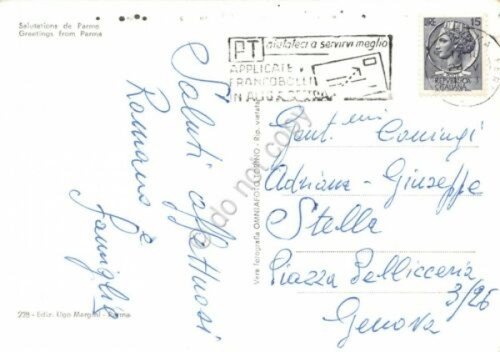 Salutations de Parme
Greetings from Parma
Saluti affettuosi
Romano e
Famiglia
228 - Ediz. Ugo Margini - Parma
Vera fotografia OMNIAFOTO TORINO - Rip. vietata
PT aiutateci a servirvi meglio
APPLICATE
FRANCOBOLLI
IN ALTO A DESTRA
LIRE 15
REPUBBLICA
ITALIANA
Gent.mi Coniugi
Adriana - Giuseppe
Stella
Piazza Pellicceria
3/26
Genova
do not copy